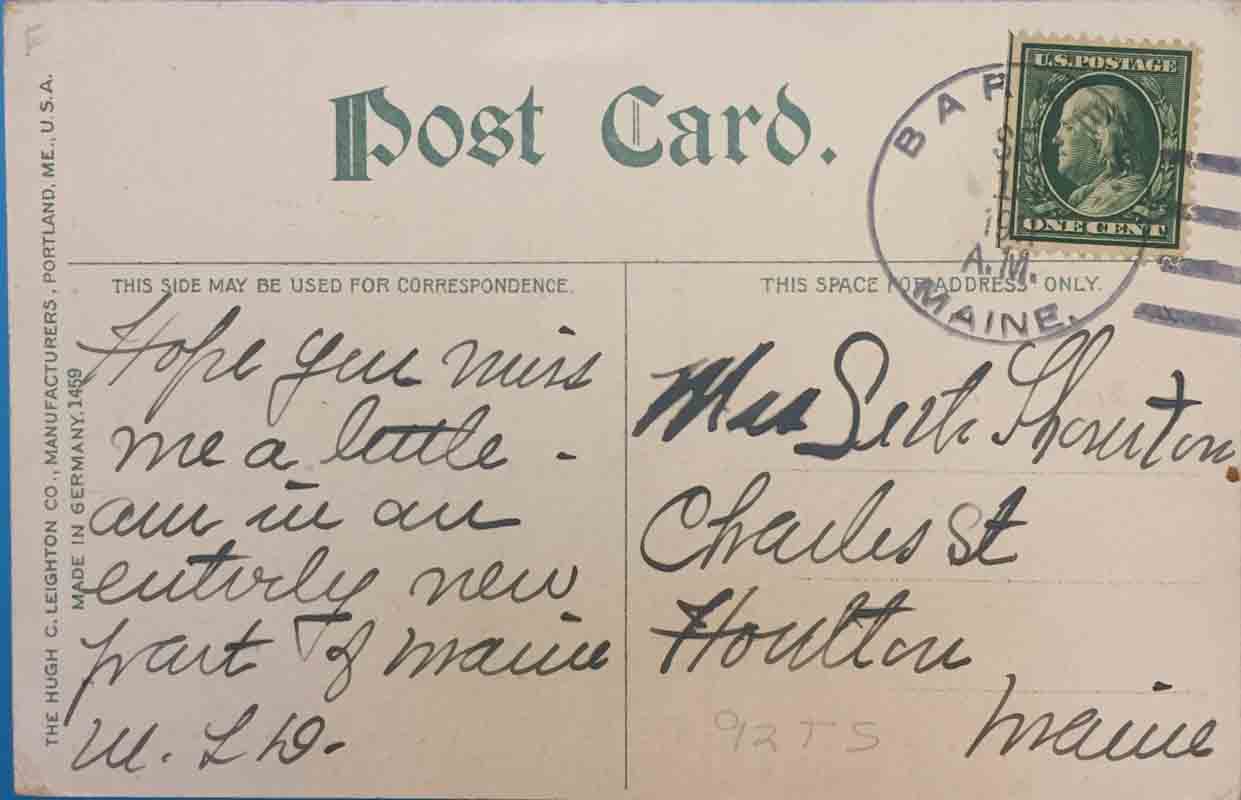 Post Card.
U.S. POSTAGE
ONE CENT
BAR
A.M.
MAINE.
THIS SIDE MAY BE USED FOR CORRESPONDENCE.
THIS SPACE FOR ADDRESS ONLY.
THE HUGH C. LEIGHTON CO., MANUFACTURERS, PORTLAND, ME., U.S.A.
MADE IN GERMANY. 1459
Hope you miss
me a little -
am in an
entirely new
part of Maine
M. L D.
Mrs Seth Thornton
Charles St
Houlton
Maine
92TS